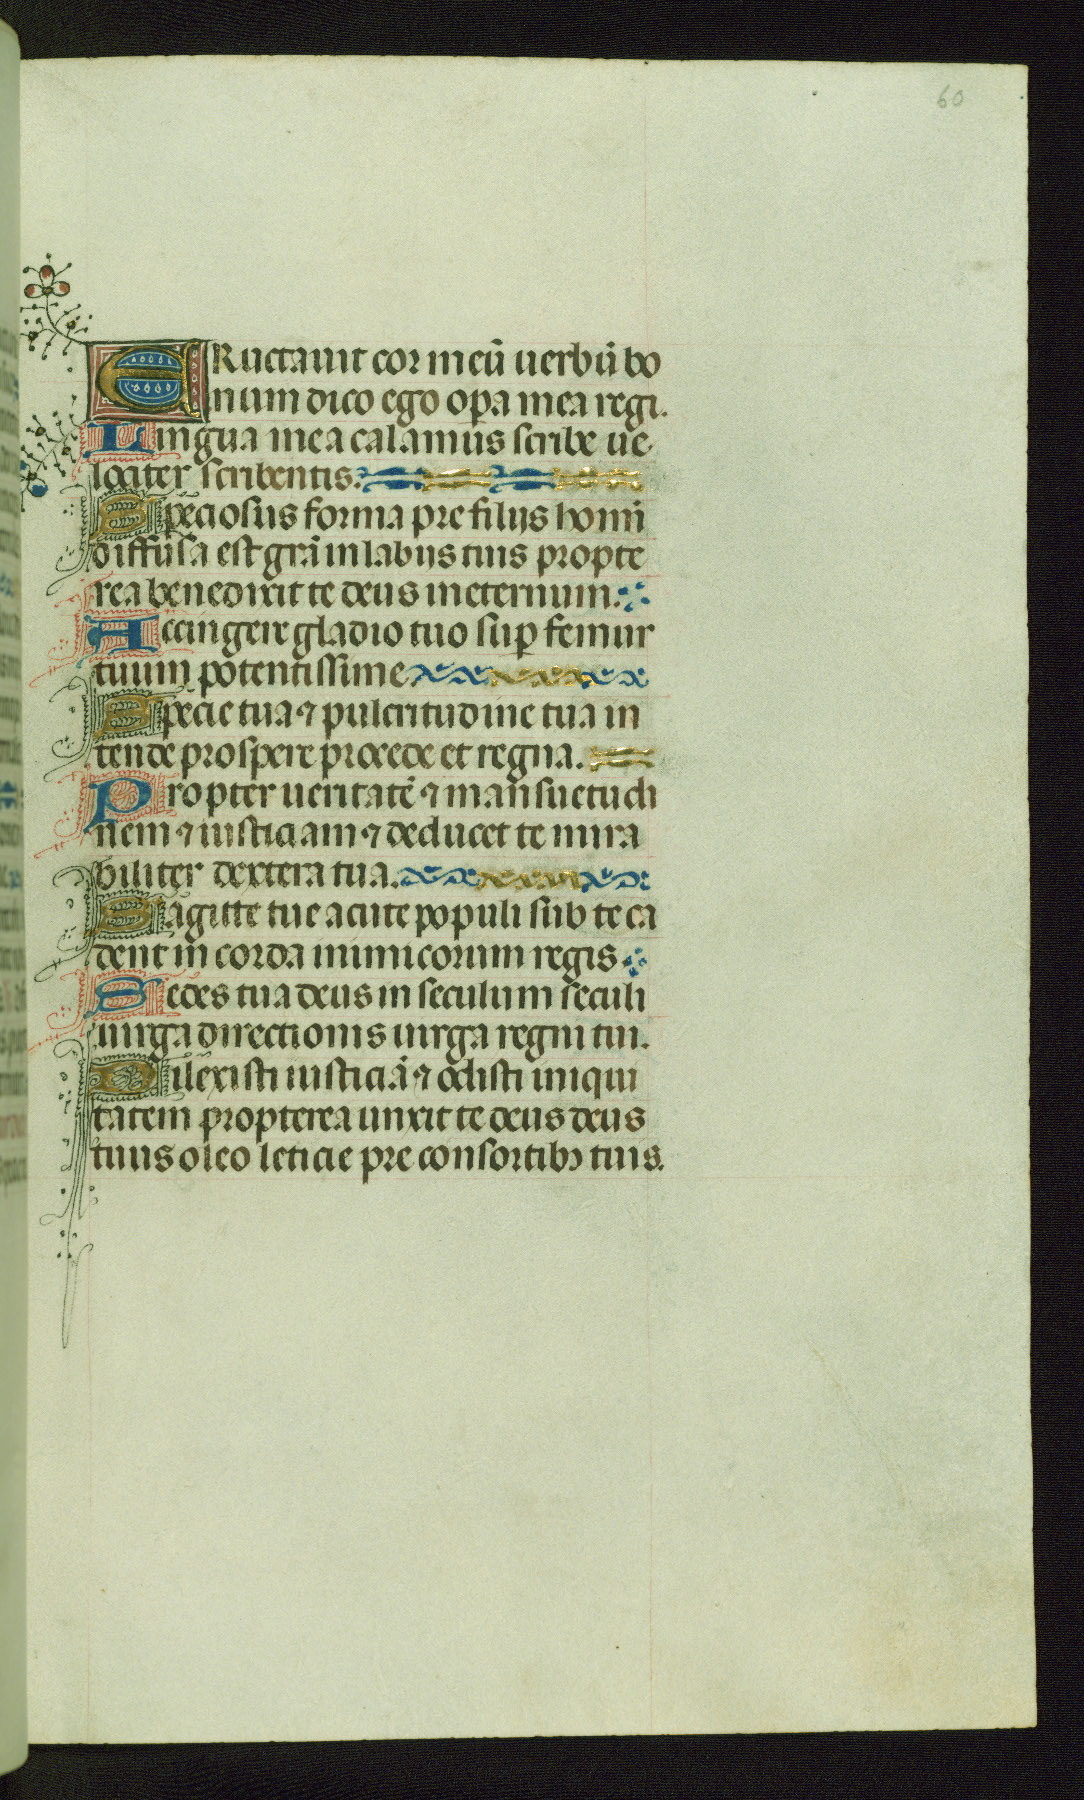 60
ERuctauit cor meū uerbū bo
num dico ego opa mea regi.
Lingua mea calamus scribe ue
lociter scribentis.
Speciosus forma pre filijs homī
diffusa est grā in labijs tuis propte
rea benedixit te deus in eternum.
Accingere gladio tuo sup femur
tuum potentissime
Specie tua ⁊ pulcritudine tua in
tende prospere procede et regna.
Propter ueritatē ⁊ mansuetudi
nem ⁊ iusticiam ⁊ deducet te mira
biliter dextera tua.
Sagitte tue acute populi sub te ca
dent in corda inimicorum regis
Sedes tua deus in seculum seculi
uirga directionis uirga regni tui.
Dilexisti iusticiā ⁊ odisti iniqui
tatem propterea unxit te deus deus
tuus oleo leticie pre consortibꝫ tuis.